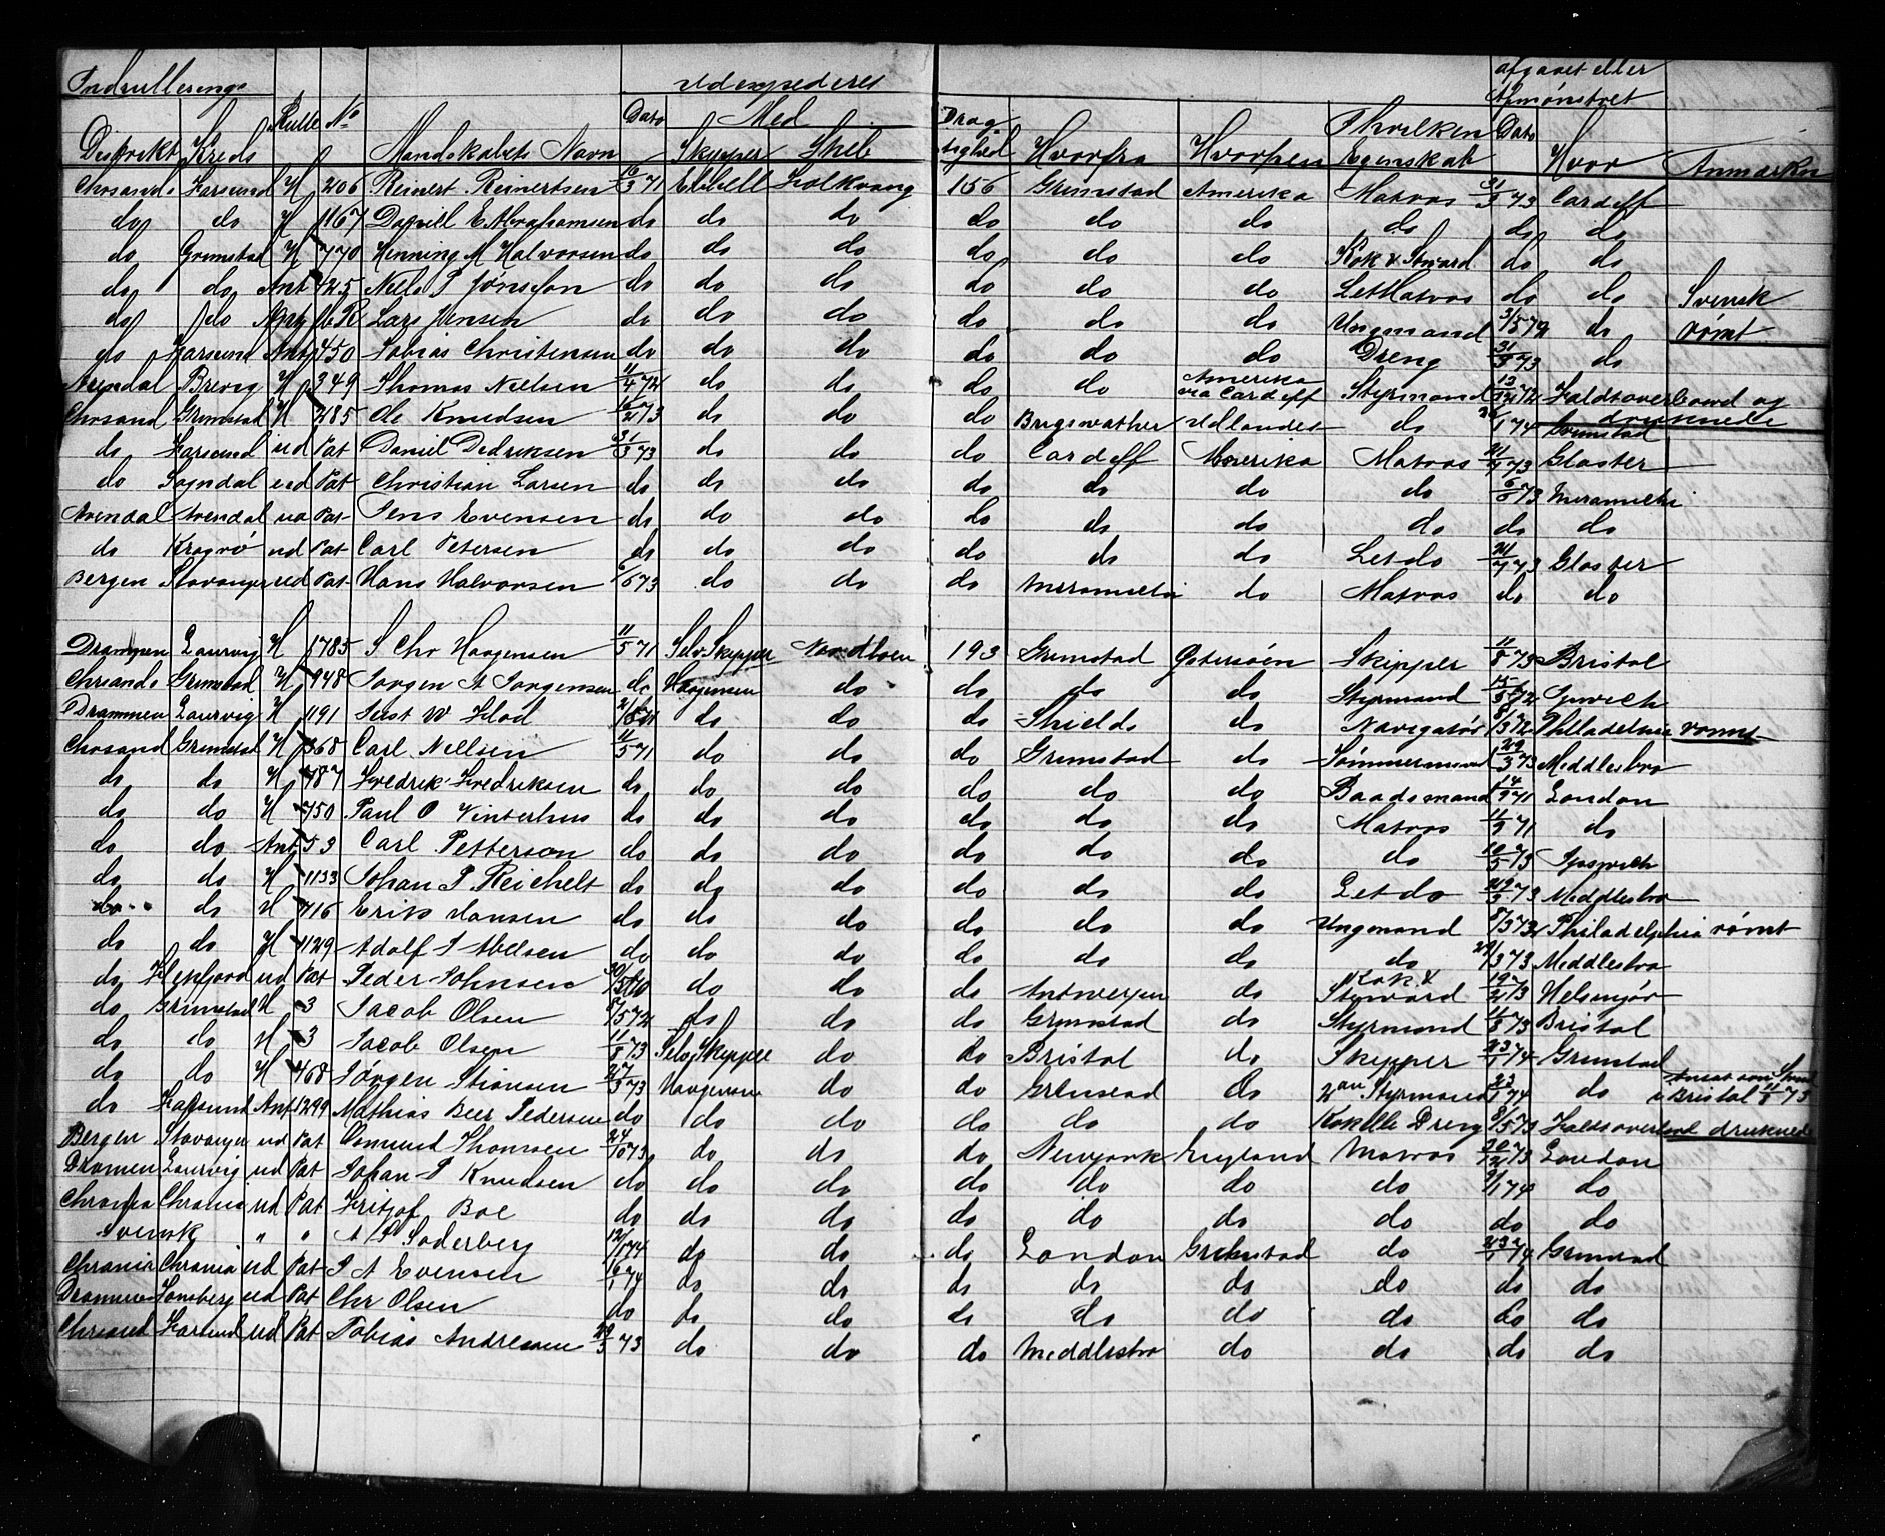 Indrulleringe Udexpederet afgaaet eller Afmønstret
Distrikt Kreds Rulle No Mandskabets Navn Dato Med Skipper Skib Dræg-tighed Hvorfra Hvorhen I hvilken Egenskab Dato Hvor Anmærkn
Chrsands Farsund H 206 Reinert Reinertsen 16/3 71 Ebbell 156 Grimstad Amerika Matros 31/3 73 Cardiff
do do H 1167 E. Abrahamsen do do do do do do do do do
do Grimstad H 770 Henning M Halvorsen do do do do do do Kok & Steward do do
do do Ant 425 Nels P Jönsson do do do do do do Let Matros do do Svensk
do do Lars Jensen do do do do do do Ungmand do rømt
do Farsund Ant 450 Tobias Christensen do do do do do do Dreng 31/3 73 do
Arendal Brevig H 349 Thomas Nielsen 11/4 72 do do do do Amerika via Cardiff Styrmand 13/12 72 Faldt overbord og druknede
Chrsand Grimstad H 285 Ole Knudsen 16/2 73 do do do Brigewather Udlandet do Grimstad
do Farsund ud Pat Daniel Didriksen 31/3 73 do do do Cardiff Amerika Matros Gloster
do Sogndal ud Pat Christian Larsen do do do do do do do Meramichi
Arendal Arendal ud Pat Jens Evensen do do do do do do do do do
do Kragerø ud Pat Carl Petersen do do do do do do Let do Gloster
Bergen Stavanger ud Pat Hans Halvorsen do do do Meramichi do Matros do do
Drammen Laurvig H 1785 S Chr Haagensen 11/5 71 Selv Skipper 193 Grimstad Østersøen Skipper 11/8 73 Bristol
Chrsands Grimstad H 948 Jørgen A Jørgensen do Haagensen do do do do Styrmand Ipswich
Drammen Laurvig H 1191 Just W Flod do do do Shields do Navigatør Philladelphia rømt
Chrsand Grimstad H 368 Carl Nielsen 11/5 71 do do do Grimstad do Tømmermand 29/3 73 Middlesbro
do do H 487 Fredrik Fredriksen do do do do do do Baadsmand London
do do H 450 Paul O Vinterhus do do do do do do Matros do
do do Ant 53 Carl Petterson do do do do do do do Ipswich
do do H 1133 Johan P. Reichelt do do do do do do Let do 29/3 73 Middlesbro
do do H 416 Erik Hansen do do do do do do Ungmand Philadelphia rømt
do do H 1129 Adolf T Abelsen do do do do do do do 29/3 73 Middlesbro
do Flekefjord ud Pat Peder Johnsen do do do Antwerpen do Kok & Steward Helsingør
do Grimstad H 3 Jacob Olsen 8/5 72 do do do Grimstad do Styrmand 11/8 73 Bristol
do do H 3 Jacob Olsen 11/8 73 Selv Skipper do do Bristol do Skipper 23/1 74 Grimstad
do do H 468 Jørgen Stiansen 27/3 73 Haagensen do do Grimstad do 2den Styrmand 23/1 74 do Ansat som Bristol 11/8 73
do Farsund Ant 1299 Mathias Beer Pedersen do do do do do do Kok elle Dreng 8/5 73 Faldt overbord druknede
Bergen Stavanger ud Pat Osmund Thomsen 24/10 73 do do do Newyork England Matros London
Dramen Laurvig ud Pat Johan P Knudsen do do do do do do do do
Chrania Chrania ud Pat Fritjof Boe do do do do do do do do do
Svensk " " A P Soderberg 12/1 74 do do do London Grimstad do 23/1 74 Grimstad
Chrania Chrania ud Pat J A Evensen 16/1 74 do do do do do do do do
Drammen Tønsberg ud Pat Chr Olsen do do do do do do do do do
Chrsand Farsund ud Pat Tobias Andresen 29/3 73 do do do Middlesbro do do do do